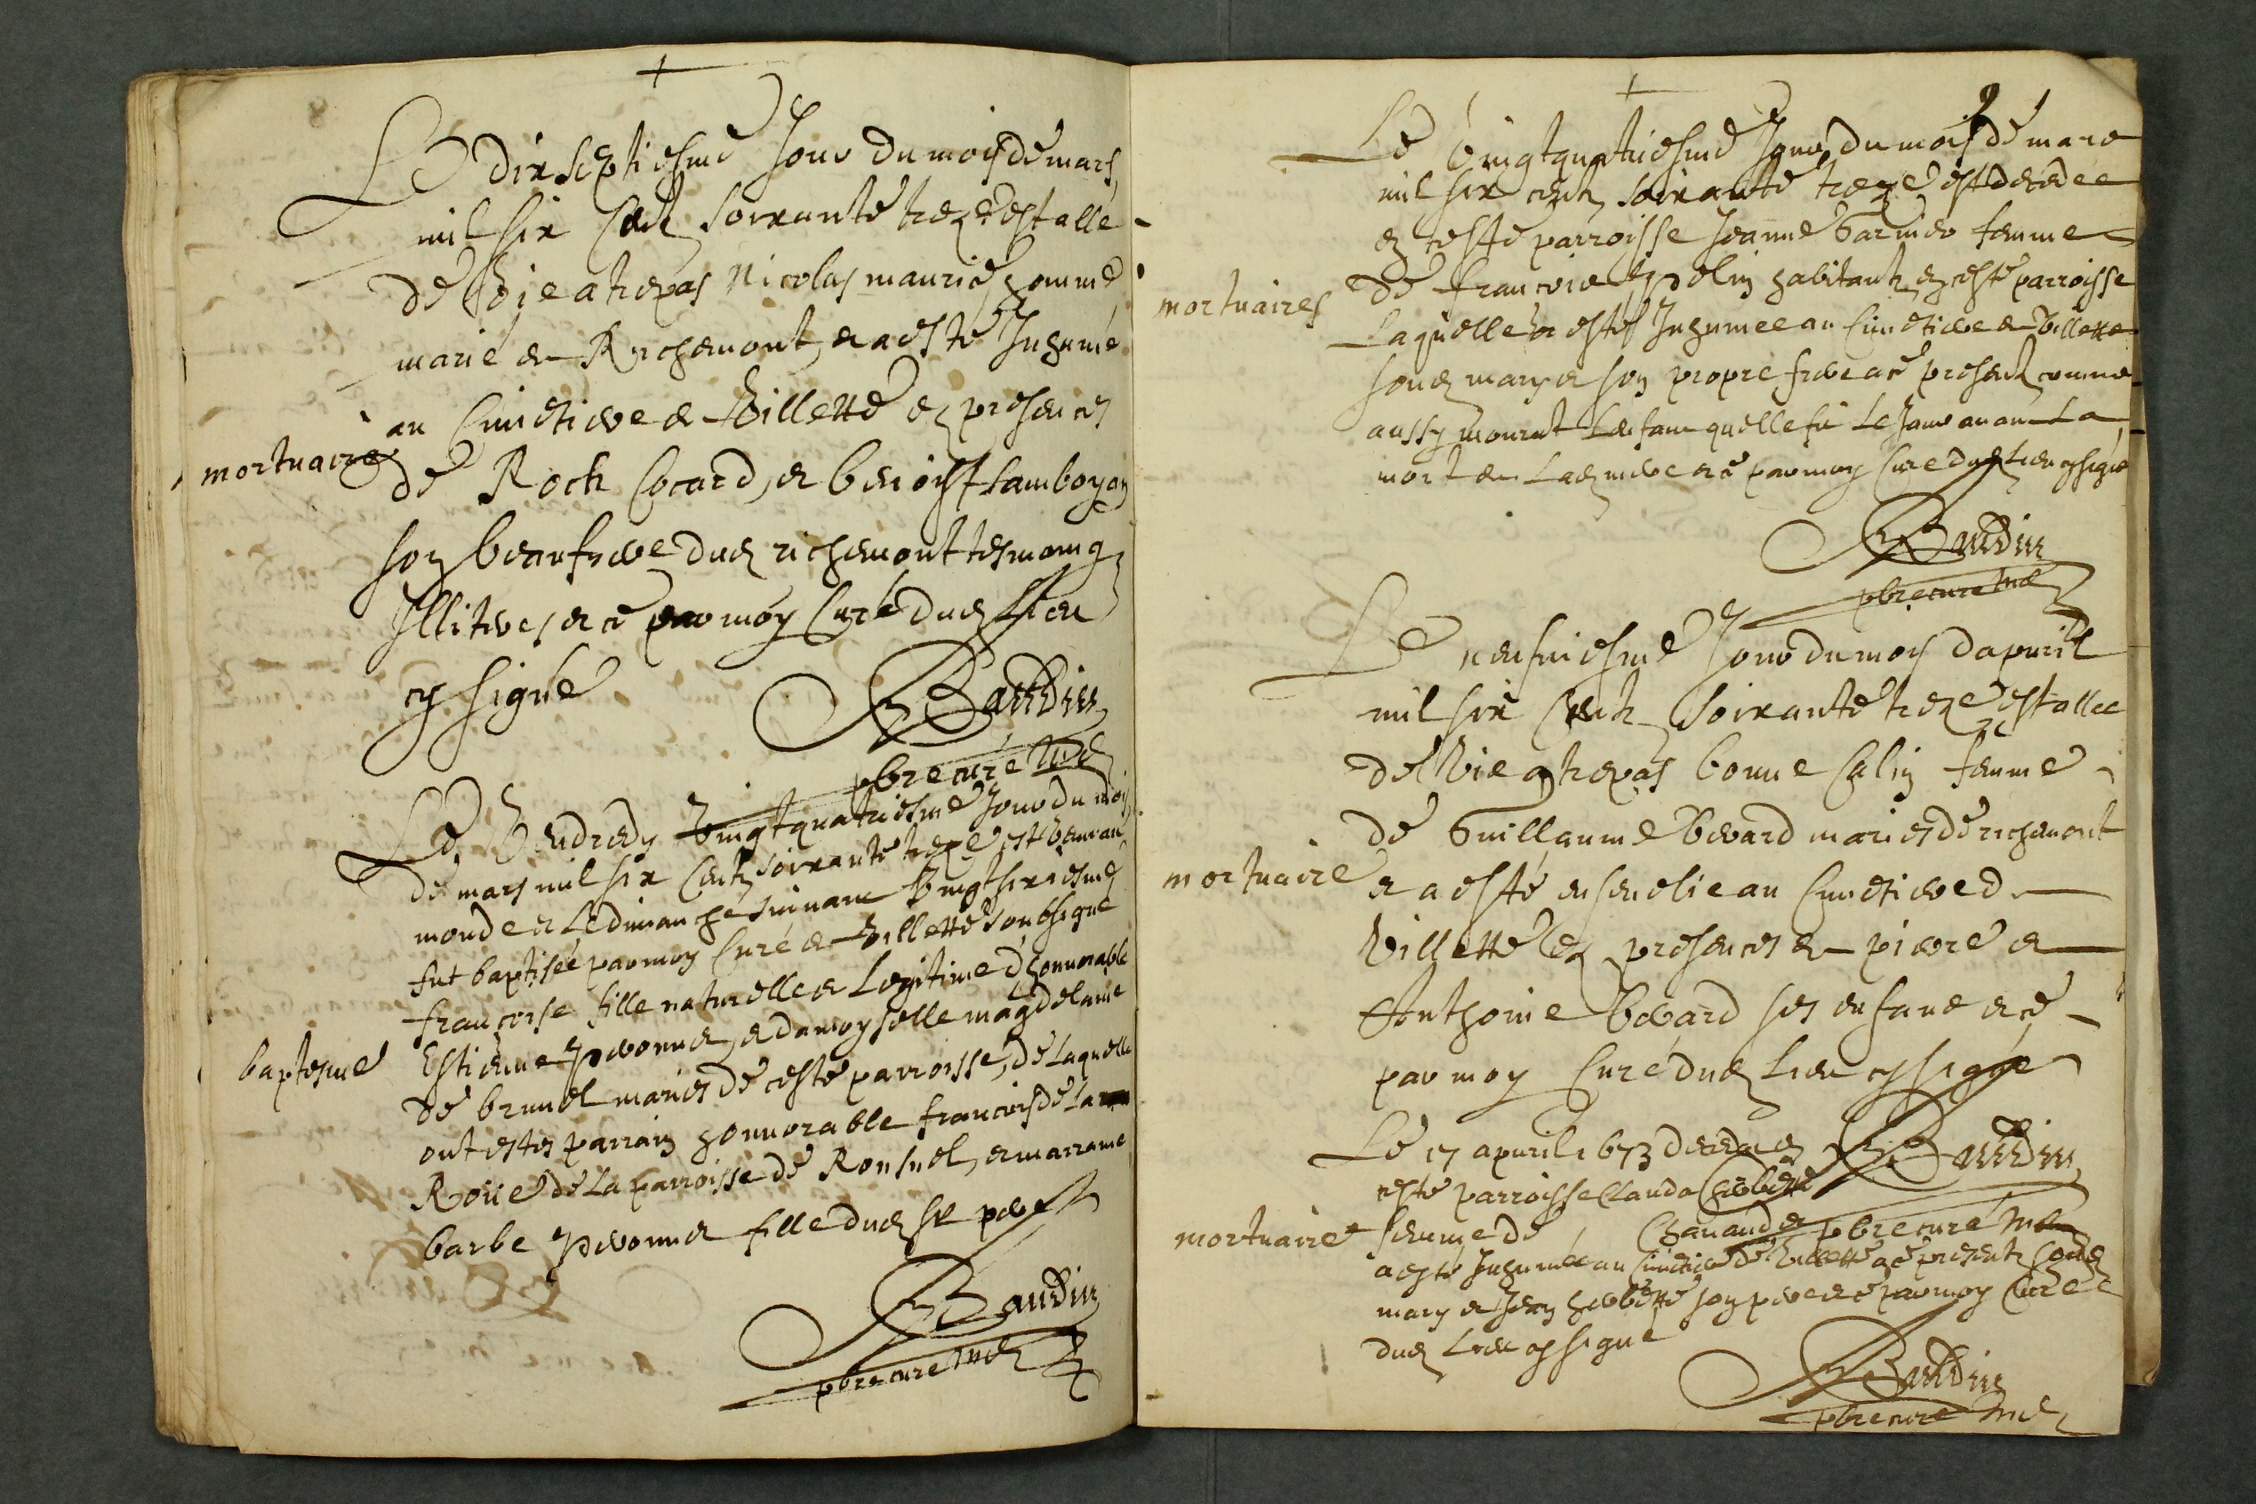 Le dix septiesme Jour du mois de mars
mil six cent soixante treze est allé
de vie a trepas Nicolas mauris homme
marié de Richemont, et a esté Inhumé
au Cimetiere de Villette ez presences
mortuaire
de Roch Cocard, et benoist Lamboyon
son beaufrere dud richemont tesmoing
Illitres et ce par moy Curé dud Lieu
cy signé
Baudin
pbre curé
Le Vendredy vingtquatriesme Jour du mois
de mars mil six cent soixante treze est venu au
monde et Le dimanche suivant vingtsixiesme
fut baptisée par moy Curé de Villette soubsigné
françoise fille naturelle et Legitime d'honnorable
baptesme
Estienne et damoyselle magdelaine
de brunel mariés de ceste parroisse, de Laquelle
ont estes parrain honnorable francois de La
Roüe de La parroisse de et marraine
barbe fille dud sr
Baudin
pbre curé
9
Le vingtquatriesme Jour du mois de mars
mil six cent soixante treze est decedee
en ceste parroisse Jeanne Garnier femme
mortuaires
de francois habitant en ceste parroisse
Laquelle a esté Inhumee au Cimetiere de Villette
sond mary et son propre frere a ce present comme
aussy mourut Lenfant quelle fit Le Jour avant La
mort de et ce par moy Curé dud Lieu cy signé
Baudin
pbre curé
Le neufviesme Jour du mois dapvril
mil six cent soixante treze est allee
de vie a trepas bonne Calin femme
de Guillaume Berard mariés de richemont
mortuaire
et a esté ensevelie au Cimetiere de
Villette ez presences de pierre et
Anthoine Berard ses enfans et ce
par moy Curé dud Lieu cy signé
Baudin
pbre curé
Le 17 apvril 1673 deceda en
ceste parroisse Clauda
mortuaire
femme de
a esté Inhumée au Cimetiere de Villette a ce present sond
mary et Jean son pere et ce par moy Curé
dud Lieu cy signé
Baudin
pbre curé